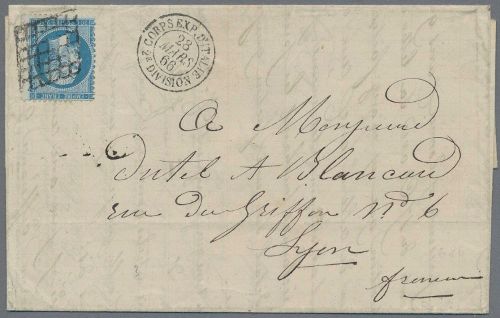 CORPS EXP. D'ITALIE 2E DIVISION
28
MARS
66
EMPIRE FRANC
A Monsieur
Dutel A Blancard
rue du Griffon No 6
Lyon